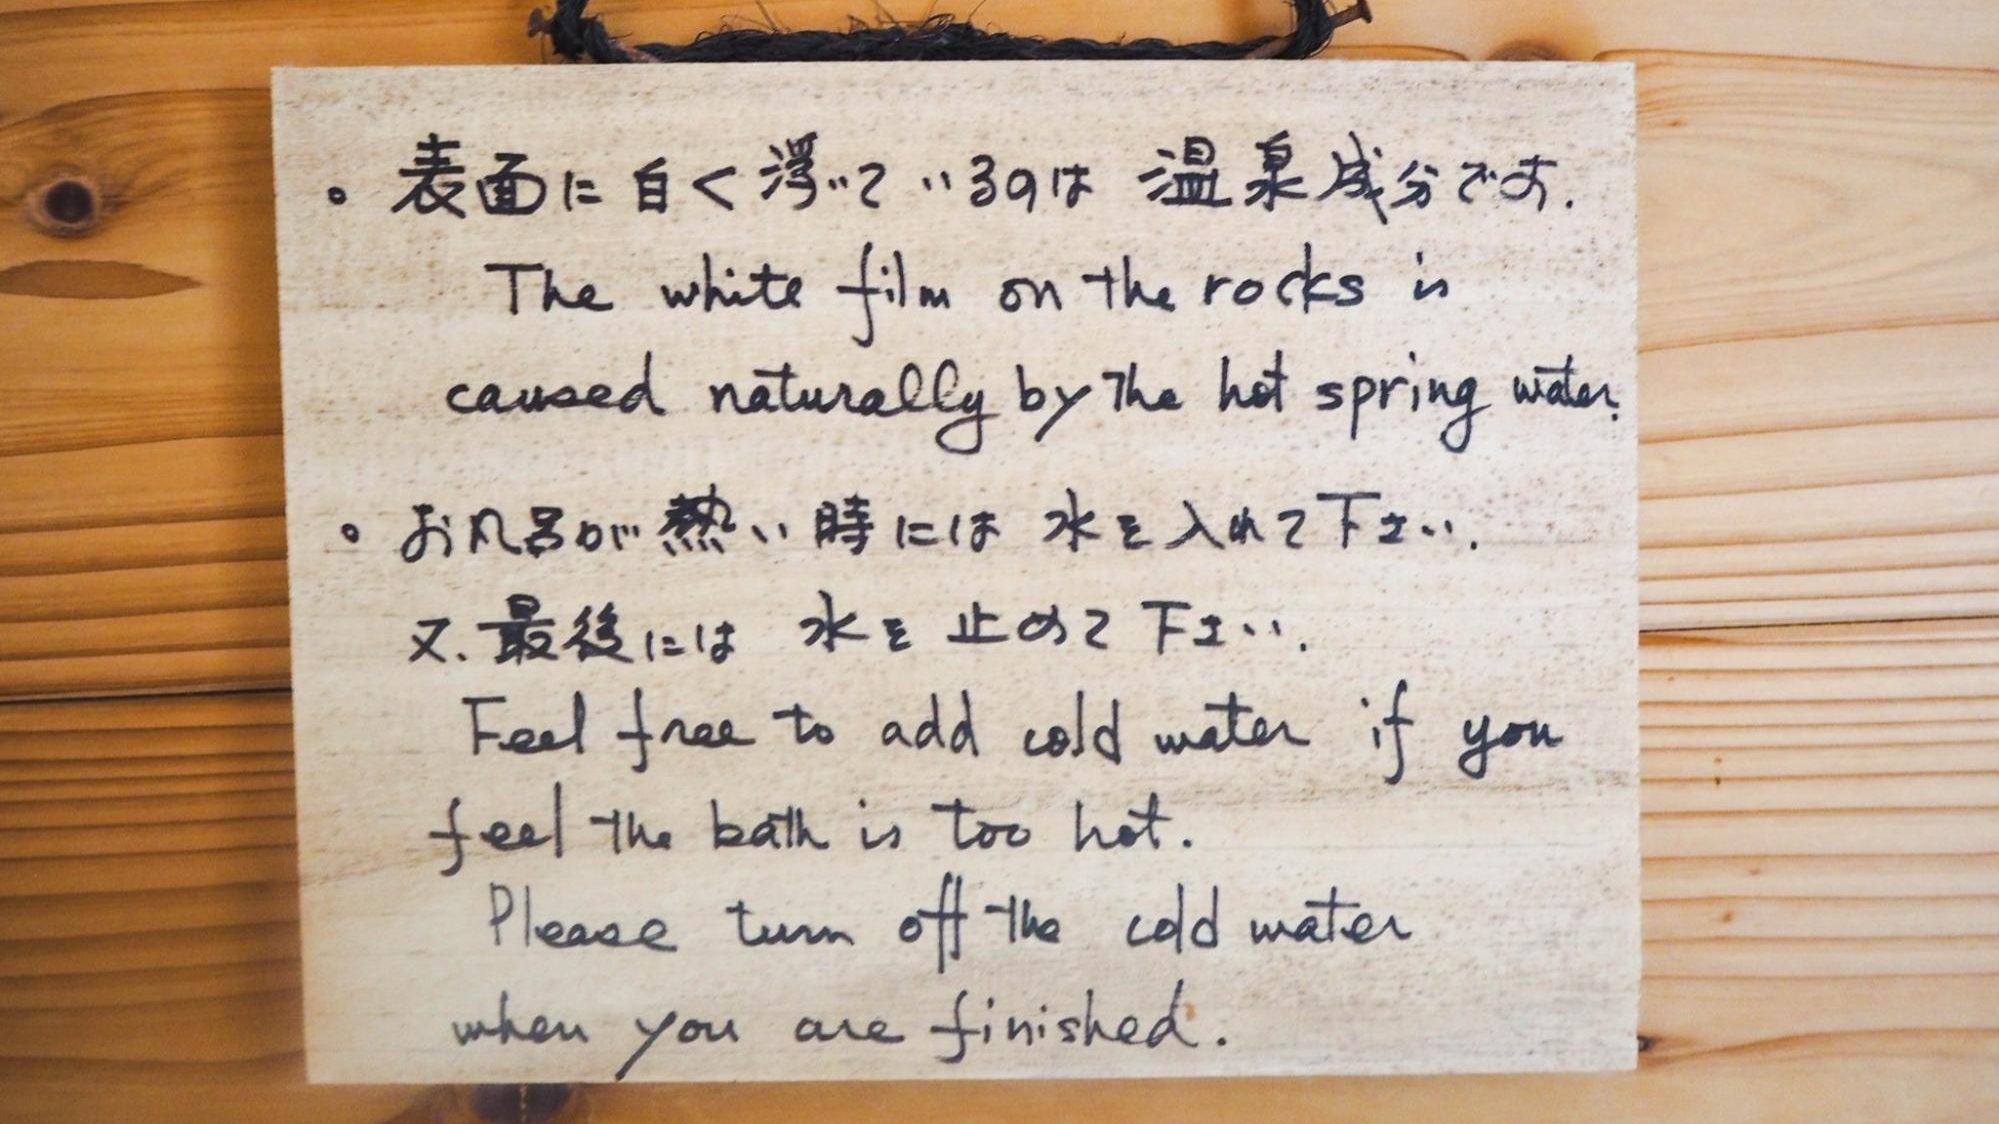 。表面に白く浮いているのは 温泉成分です.
The white film on the rocks is
caused naturally by the hot spring water.
。お風呂が熱い時には 水を入れて下さい.
又.最後には 水を止めて下さい.
Feel free to add cold water if you
feel the bath is too hot.
Please turn off the cold water
when you are finished.